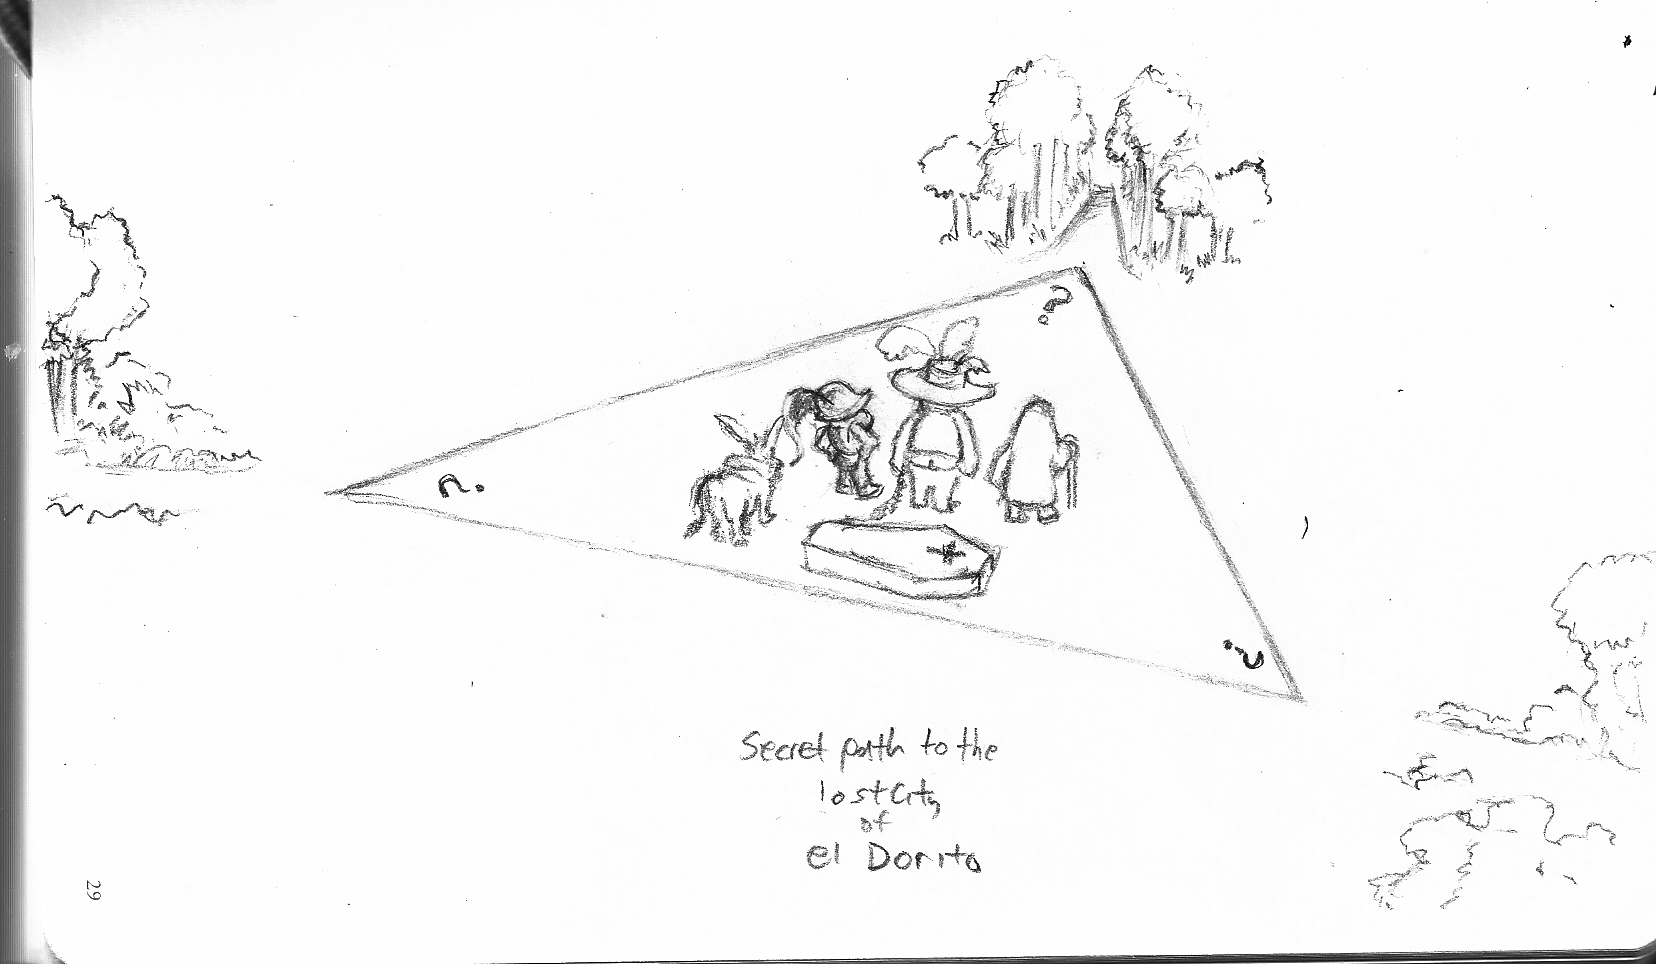 ?
?
?
Secret path to the
lost City
of
el Dorito
29